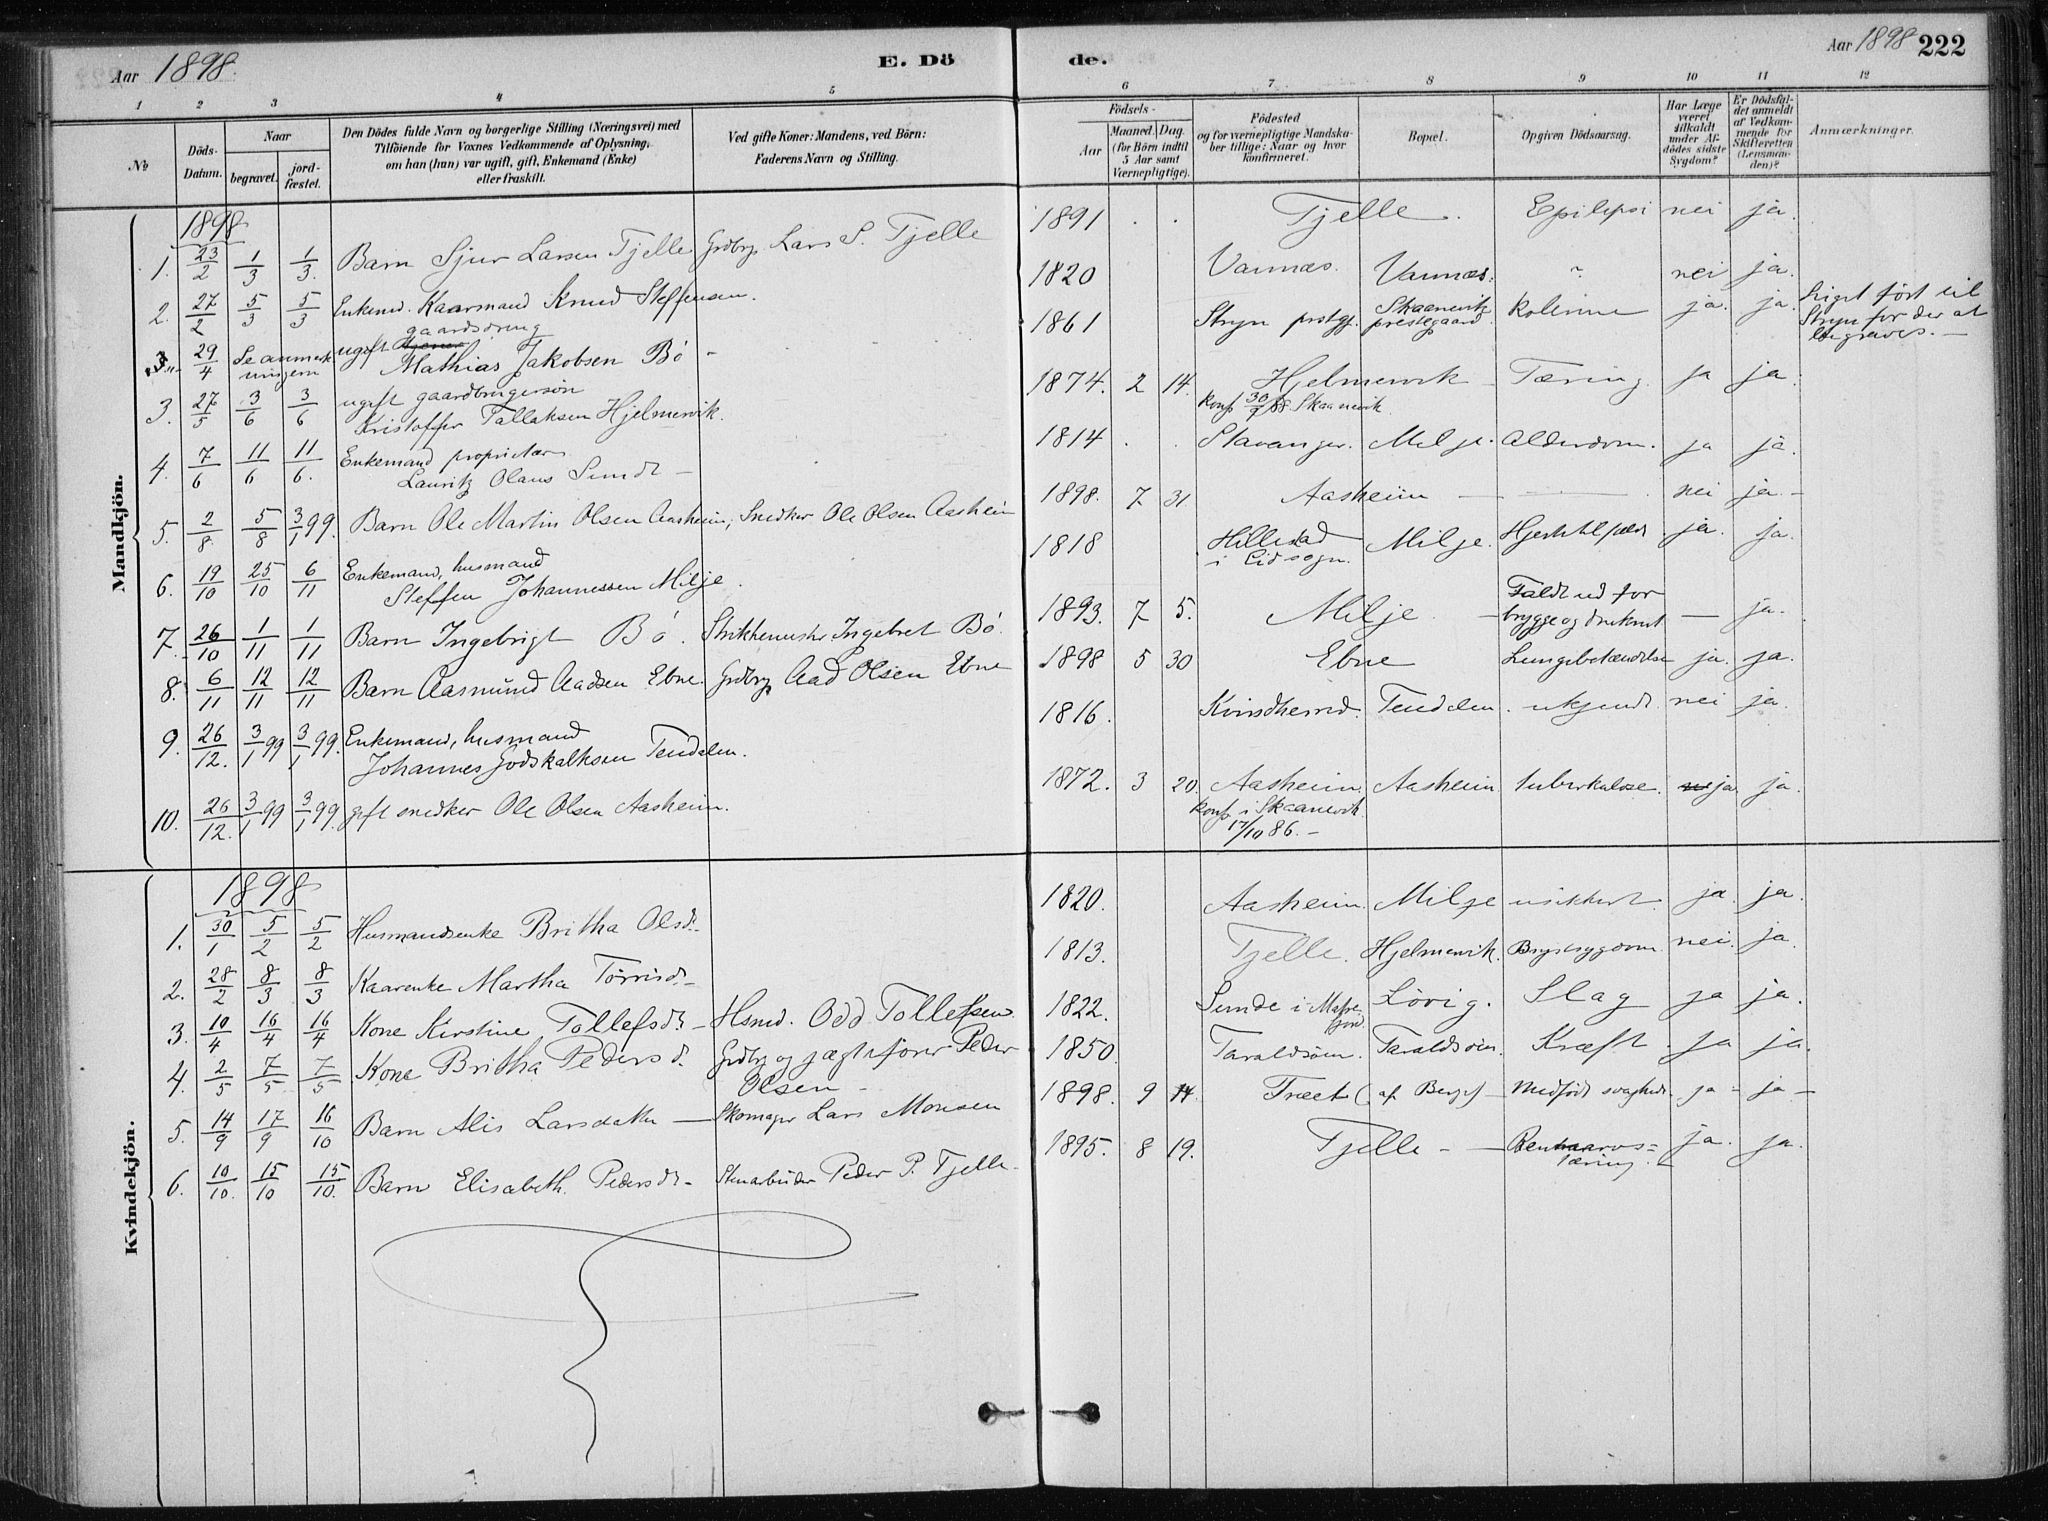 Aar 1898.
E. Dö
de.
Aar 1898
222
1 2 3 4 5 6 7 8 9 10 11 12
No
Döds-Datum.
Naar
begravet.
jordfæstet.
Den Dödes fulde Navn og borgerlige Stilling (Næringsvei) med
Tilföiende for Voxnes Vedkommende af Oplysning,
om han (hun) var ugift, gift, Enkemand (Enke)
eller fraskilt.
Ved gifte Koner: Mandens, ved Börn:
Faderens Navn og Stilling.
Födsels-
Aar
Maaned. Dag.
(for Börn indtil
5 Aar samt
Værnepligtige).
Födested
og for værnepligtige Mandska-
ber tillige: Naar og hvor
konfirmeret.
Bopæl.
Opgiven Dödsaarsag.
Har Læge
været
tilkaldt
under Af-
dödes sidste
Sygdom?
Er Dödsfal-
det anmeldt
af Vedkom-
mende for
Skifteretten
(Lensman-
den)?
Anmærkninger.
Mandkjön.
1898
1. 23/2 1/3 1/3 Barn Sjur Larsen Tjelle Grdbrg. Lars S. Tjelle 1891 . . Tjelle. Epilepsi nei ja.
2. 27/2 5/3 5/3 Enkemd. Kaarmand Knud Steffensen. 1820 Vannæs. Vannæs. " nei ja.
29/4 Se anmærkningen ugift gaardsdreng
Mathias Jakobsen Bö – 1861 Stryn prstgj. Skaanevik prestegaard. kolerine ja. ja. Liget ført til
Stryn for der at
begraves. –
3. 27/5 3/6 3/6 ugift gaardbrugersön
Kristoffer Tallaksen Hjelmervik. 1874. 2 14. Hjelmervik – Tæring. ja ja.
konf. 30/9 88 Skaanevik.
4. 7/6 11/6 11/6. Enkemand proprietær
Lauritz Olaus Sundt – 1814 . . Stavanger. Milje. Alderdom. ja ja.
5. 2/8 5/8 3/1 99. Barn Ole Martin Olsen Aasheim, Snedker Ole Olsen Aasheim 1898. 7 31 Aasheim — — nei ja. –
6. 19/10 25/10 6/11 Enkemand, husmand
Steffen Johannessen Milje. 1818 Hillestad
i Eid sogn. Milje. ja. ja.
7. 26/10 1/11 1/11 Barn Ingebrigt Bö. Ingebret Bö. 1893. 7 5. Milje. – Faldt ud for
brygge og druknet — ja.
8. 6/11 12/11 12/11 Barn Aasmund Aadsen Ebne. Grdbrg Aad Olsen Ebne 1898 5 30 Ebne Lungebetændelse ja. ja.
9. 26/12. 3/1 99 3/1 99. Enkemand, husmand
Johannes Godskalksen Teudalen. 1816. Kvindherred. Teudalen. ukjendt. nei ja.
10. 26/12. 3/1 99 3/1 99. gift snedker Ole Olsen Aasheim. 1872. 3 20. Aasheim. Aasheim. tuberkulose. ja ja.
konf. i Skaanevik.
17/10 86. –
Kvindekjön.
1898
1. 30/1 5/2 5/2 Husmandsenke Britha Olsdr. 1820. Aasheim. Milje usikkert. ja. ja.
2. 28/2 8/3 8/3 Kaarenke Martha Törrisdr. – 1813. Tjelle. Hjelmervik. Brystsygdom nei. ja.
3. 10/4 16/4 16/4 Kone Kirstine Tollefsdr. – Hsmd. Odd Tollefsen. 1822. Sunde i Matrefjord. Lövig. Slag ja ja.
4. 2/5 7/5 7/5 Kone Britha Pedersd. Grdbrg og jægtefører Peder
Olsen – 1850. Taraldsöien. Taraldsöien. Kræft. ja ja.
5. 14/9 17/9 16/10 Barn Alis Larsdatter — Skomager Lars Monsen 1898. 9 14. Træet (af Berge) – Medfödt svaghed. ja – ja –
6. 10/10. 15/10 15/10. Barn Elisabeth. Pedersdr. – Stenarbeider Peder P. Tjelle. 1895. 8 19. Tjelle – — Benmarvs-
tæring. ja. ja.